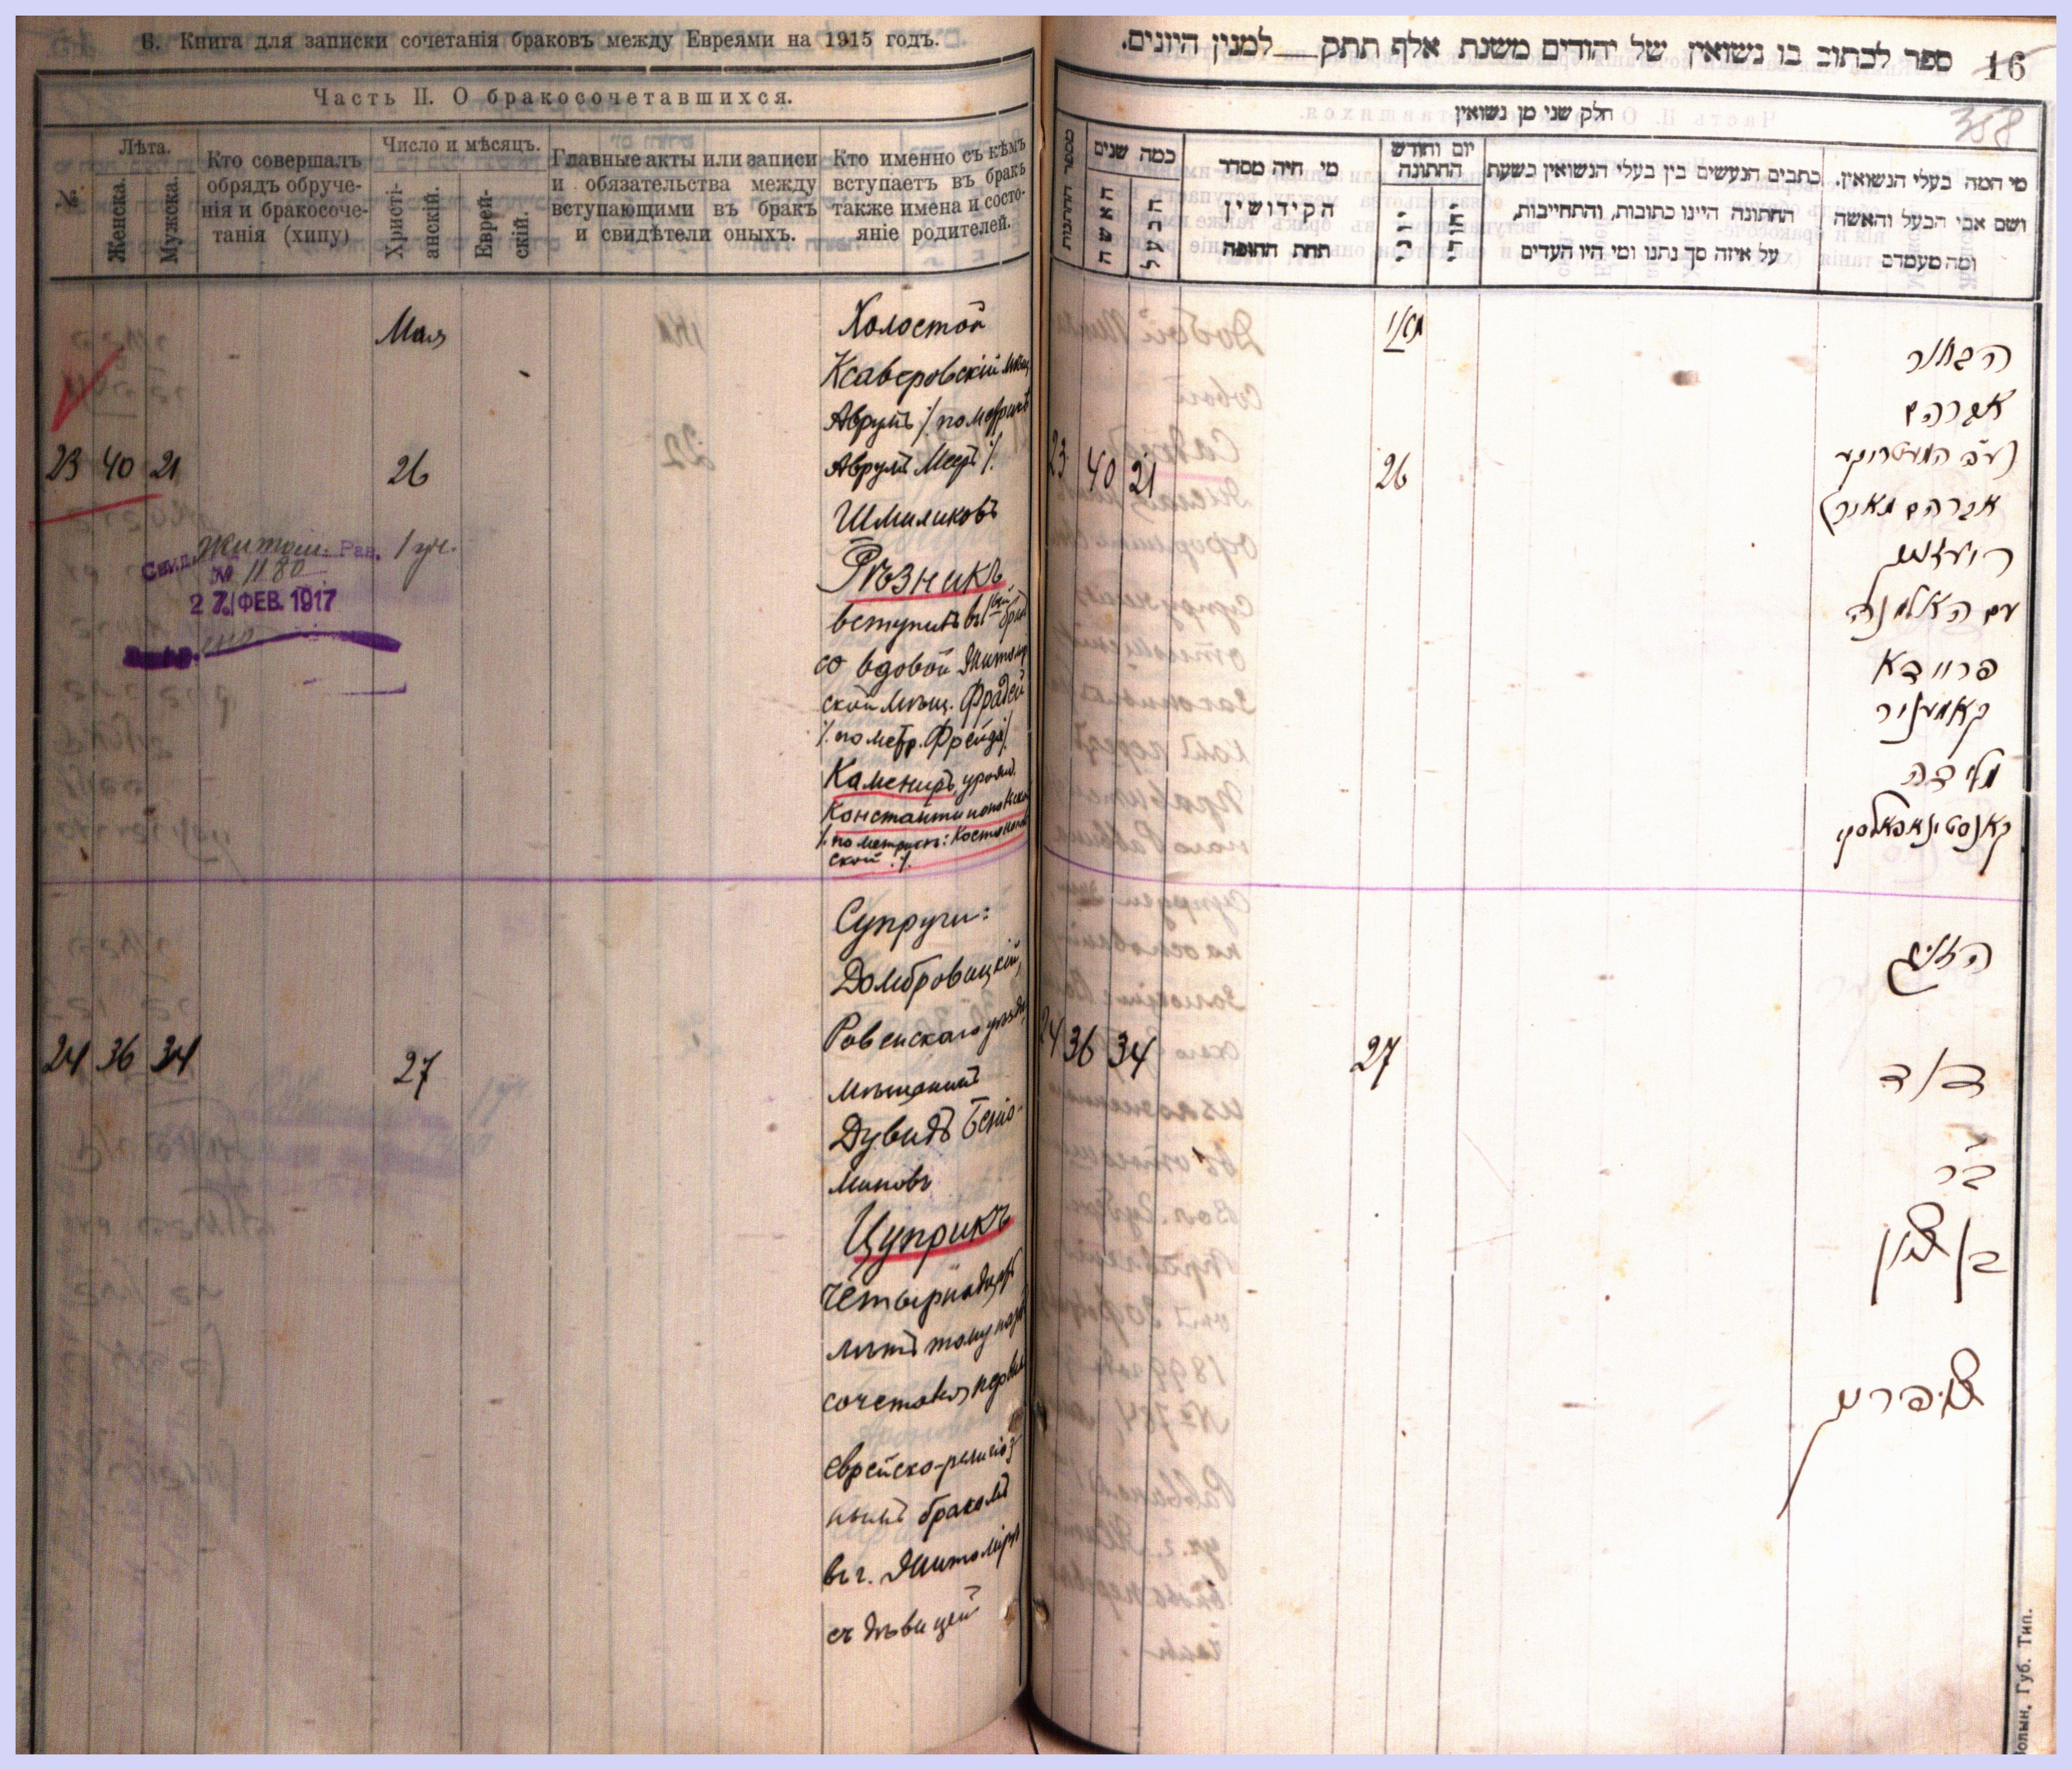 Б. Книга для записки сочетанія браковъ между Евреями на 1915 годъ.
Часть II. О бракосочетавшихся.
№.
Лѣта.
Женска.
Мужска.
Кто совершалъ
обрядъ обруче-
нія и бракосоче-
танія (хипу)
Число и мѣсяцъ.
Христі-
анскій.
Еврей-
скій.
Главные акты или записи
и обязательства между
вступающими въ бракъ
и свидѣтели оныхъ.
Кто именно съ кѣмъ
вступаетъ въ бракъ
также имена и состо-
яніе родителей.
Мая
23 40 21
26
Житом. Рав. 1 уч.
Свид.
№ 1180
27 ФЕВ. 1917
Холостой
Ксаверовскій мѣщ.
Аврумъ /. по метрикѣ
Аврумъ Меер /.
Шмиликовъ
Рѣзникъ
вступилъ въ 1ый бракъ
со вдовой Житомір
ской мѣщ. Фрадей
/. по метр. Фрейда /.
Камениръ, урожд.
Константинопольск
/. по метрикѣ: Костюков
ской ./.
24 36 34
27
Супруги:
Домбровицкій,
Ровенскаго уѣзда,
мѣщанинъ
Дувидъ Бенiо-
миновъ
Цуприкъ
четырнадцать
лѣтъ тому назадъ
сочетался первым
еврейско-религіоз
нымъ бракомъ
въ г. Житомірѣ
съ дѣвицей
16 ספר לכתוב בו נשואין של יהודים משנת אלף תתק למנין היונים.
358
חלק שני מן נשואין
מספר החתונות
כמה שנים
האשה
הבעל
מי היה מסדר
הקידושין
תחת החופה
יום וחודש
החתונה
כתבים הנעשים בין בעלי הנשואין בשעת
החתונה היינו כתובות, והתחייבות,
על איזה סך נתנו ומי היו העדים
מי המה בעלי הנשואין.
ושם אבי הבעל והאשה
ומה מעמדם
מאי
23 40 21
26
הבחור
אברהם
אברהם מאיר)
רעזניק
עם האלמנה
פריידא
קאמעניר
מלידה
קאנסטינאפאלסקי
24 36 34
27
הזוג
דוד
בר
צופריק
Волын. Губ. Тип.